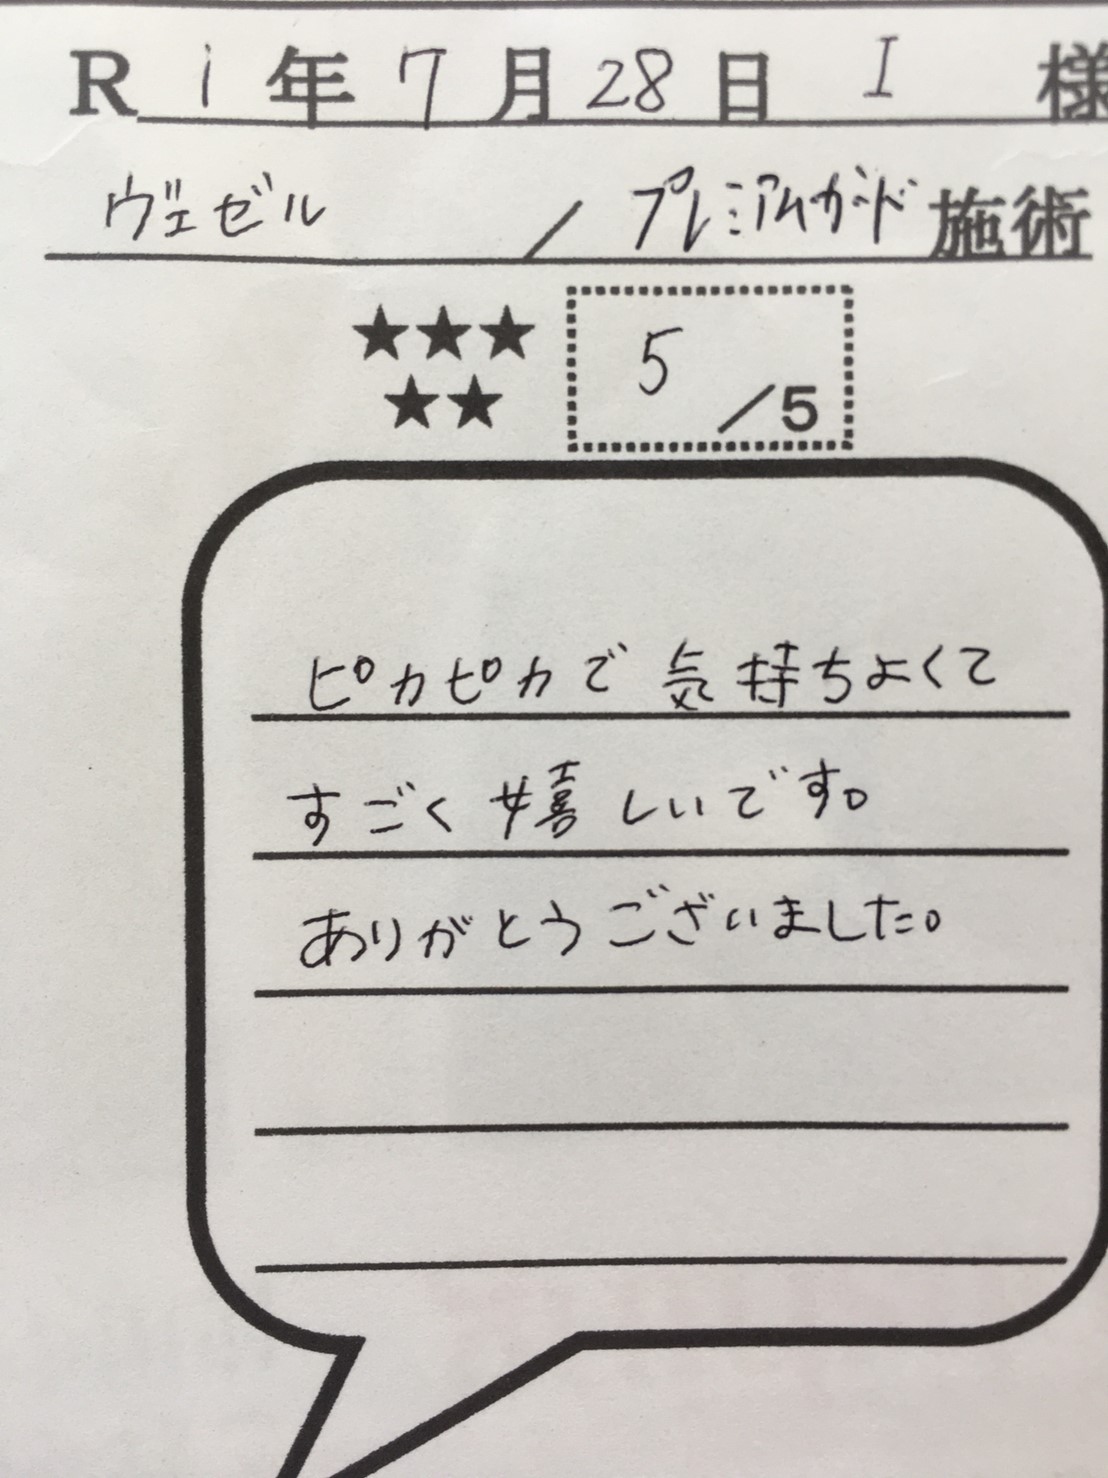 R 1年 7月 28日 I 様
ヴェゼル / プレミアムガード 施術
★★★
★★
5/5
ピカピカで気持ちよくて
すごく嬉しいです。
ありがとうございました。